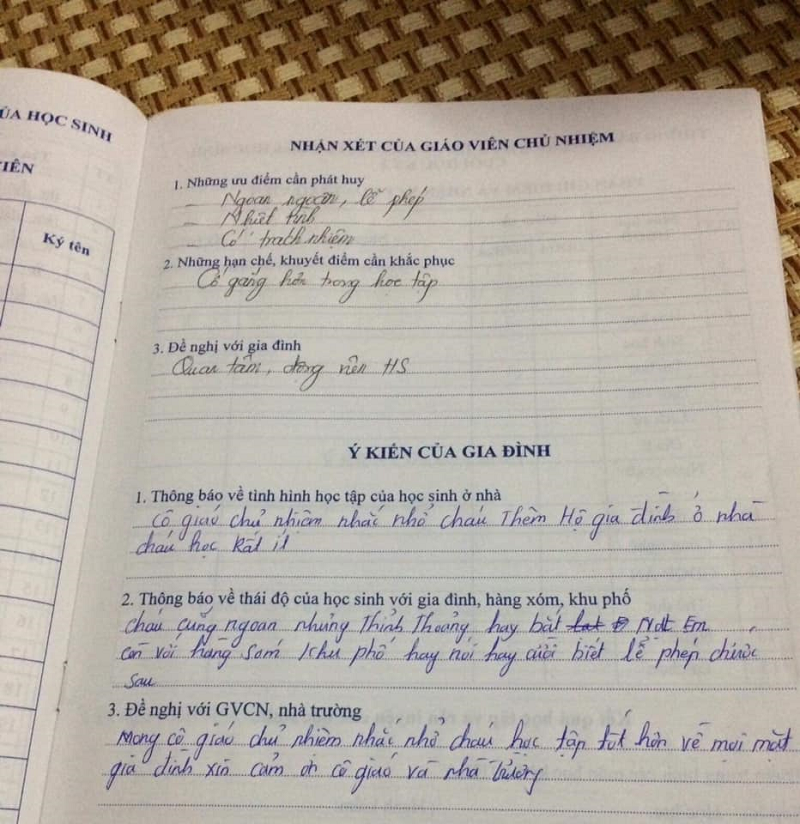 ỦA HỌC SINH
IÊN
Ký tên
NHẬN XÉT CỦA GIÁO VIÊN CHỦ NHIỆM
1. Những ưu điểm cần phát huy
_ Ngoan ngoãn, lễ phép
_ Nhiệt tình
_ Có trách nhiệm
2. Những hạn chế, khuyết điểm cần khắc phục
Cố gắng hơn trong học tập
3. Đề nghị với gia đình
Quan tâm, động viên HS
Ý KIẾN CỦA GIA ĐÌNH
1. Thông báo về tình hình học tập của học sinh ở nhà
cô giáo chủ nhiệm nhắc nhở cháu Thêm Hộ gia đình ở nhà
cháu học Rất it
2. Thông báo về thái độ của học sinh với gia đình, hàng xóm, khu phố
cháu cũng ngoan nhưng Thỉnh Thoảng hay bắt Nạt Em
còn với hàng Sóm khu phố hay nói hay cười biết lễ phép chước
sau
3. Đề nghị với GVCN, nhà trường
Mong cô giáo chủ nhiệm nhắc nhở cháu học tập tốt hơn về mọi mặt
gia đình xin cảm ơn cô giáo và nhà trường